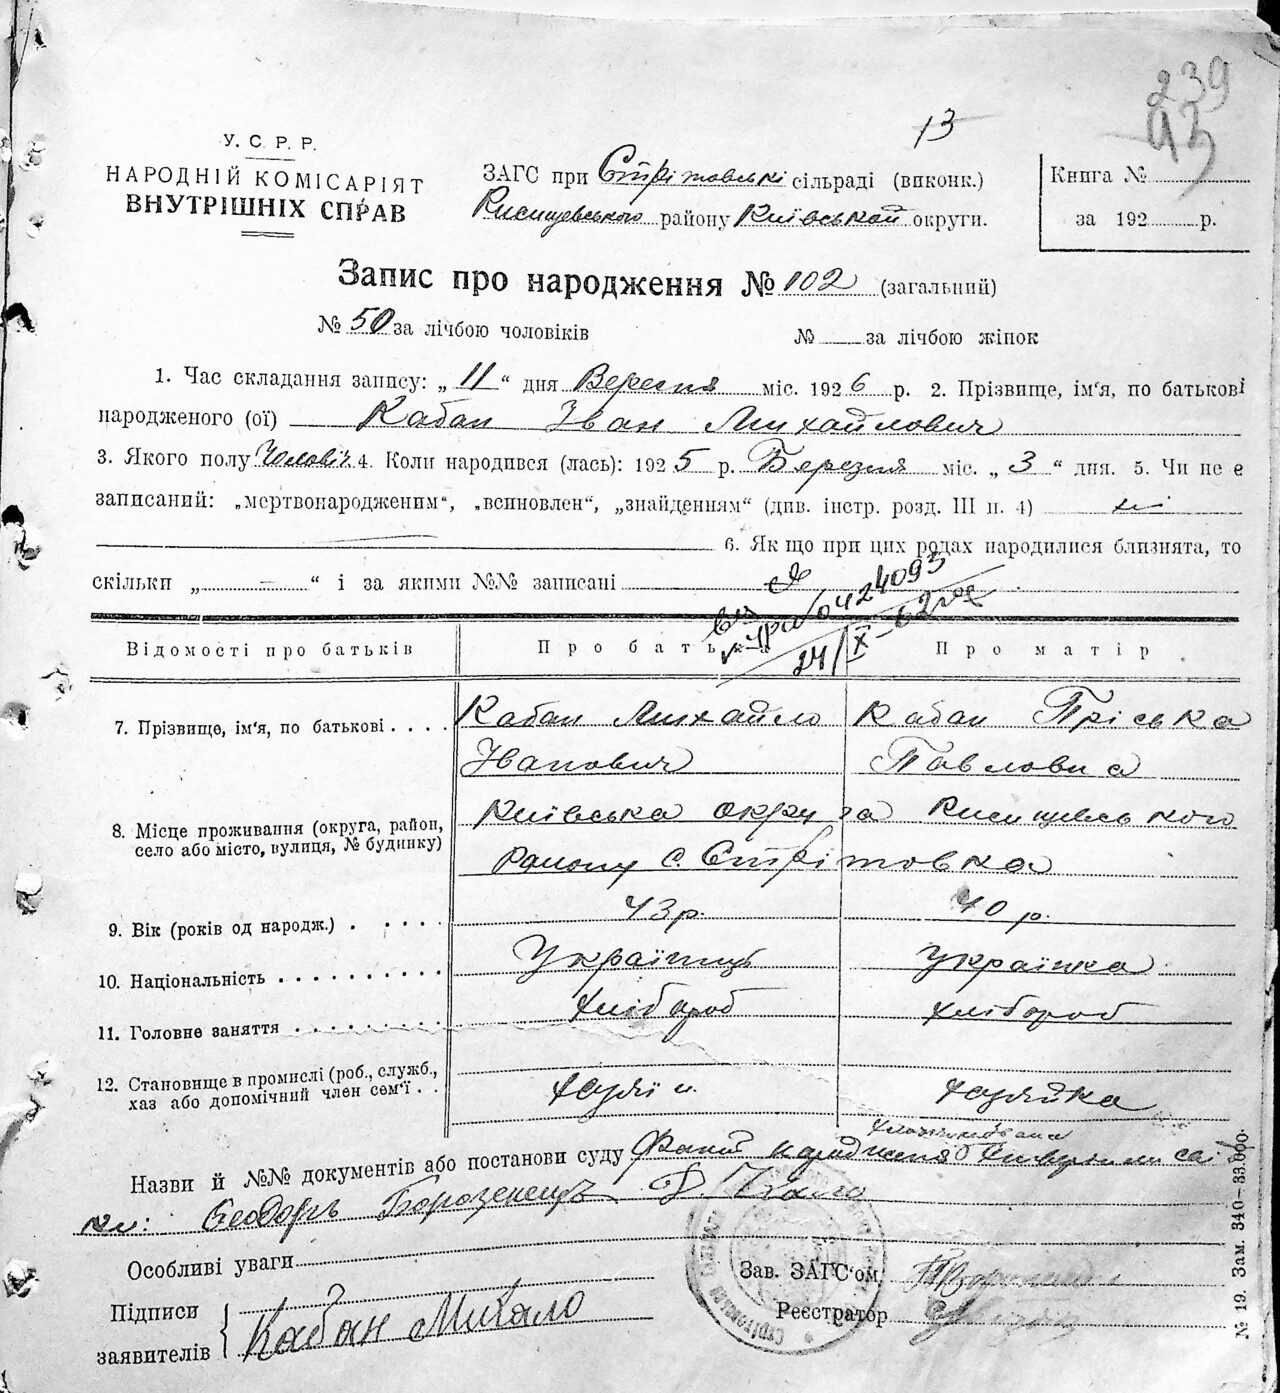 239
93
13
У. С. Р. Р.
НАРОДНІЙ КОМІСАРІЯТ
ВНУТРІШНІХ СПРАВ
ЗАГС при Стрітовські сільраді (виконк.)
Ржищевського району Київської округи.
Книга №
за 192 р.
Запис про народження № 102 (загальний)
№ 50 за лічбою чоловіків № за лічбою жінок
1. Час складання запису: „ 11 “ дня Вересня міс. 1926 р. 2. Прізвище, ім‘я, по батькові
народженого (ої) Кабан Іван Михайлович
3. Якого полу Чоловіч. 4. Коли народився (лась): 1925 р. Березня міс. „ 3 “ дня. 5. Чи не є
записаний: „мертвонародженим“, „всиновлен“, „знайденням“ (див. інстр. розд. III п. 4) ні
6. Як що при цих родах народилися близнята, то
скільки „ — “ і за якими №№ записані
0424093
24/X-62
Відомості про батьків Про батька Про матір
7. Прізвище, ім‘я, по батькові . . . . Кабан Михайло Кабан Пріська
Іванович Павловна
8. Місце проживання (округа, район,
село або місто, вулиця, № будинку)
Київська округа Ржищевського
Району с. Стрітовка
9. Вік (років од народж.) . . . . . 43 р. 40 р.
10. Національність . . . . . . . . . Українець Українка
11. Головне заняття . . . . . . . . Хлібороб Хлібороб
12. Становище в промислі (роб., служб.,
хаз або допомічний член сем‘ї . .
Хазяїн. Хазяйка
Назви й №№ документів або постанови суду Факт народження
Єеодоръ Борозенецъ
Особливі уваги
Зав. ЗАГС‘ом
Підписи
заявителів
Кабан Михало
Реєстратор
№ 19. Зам. 340—33.000.